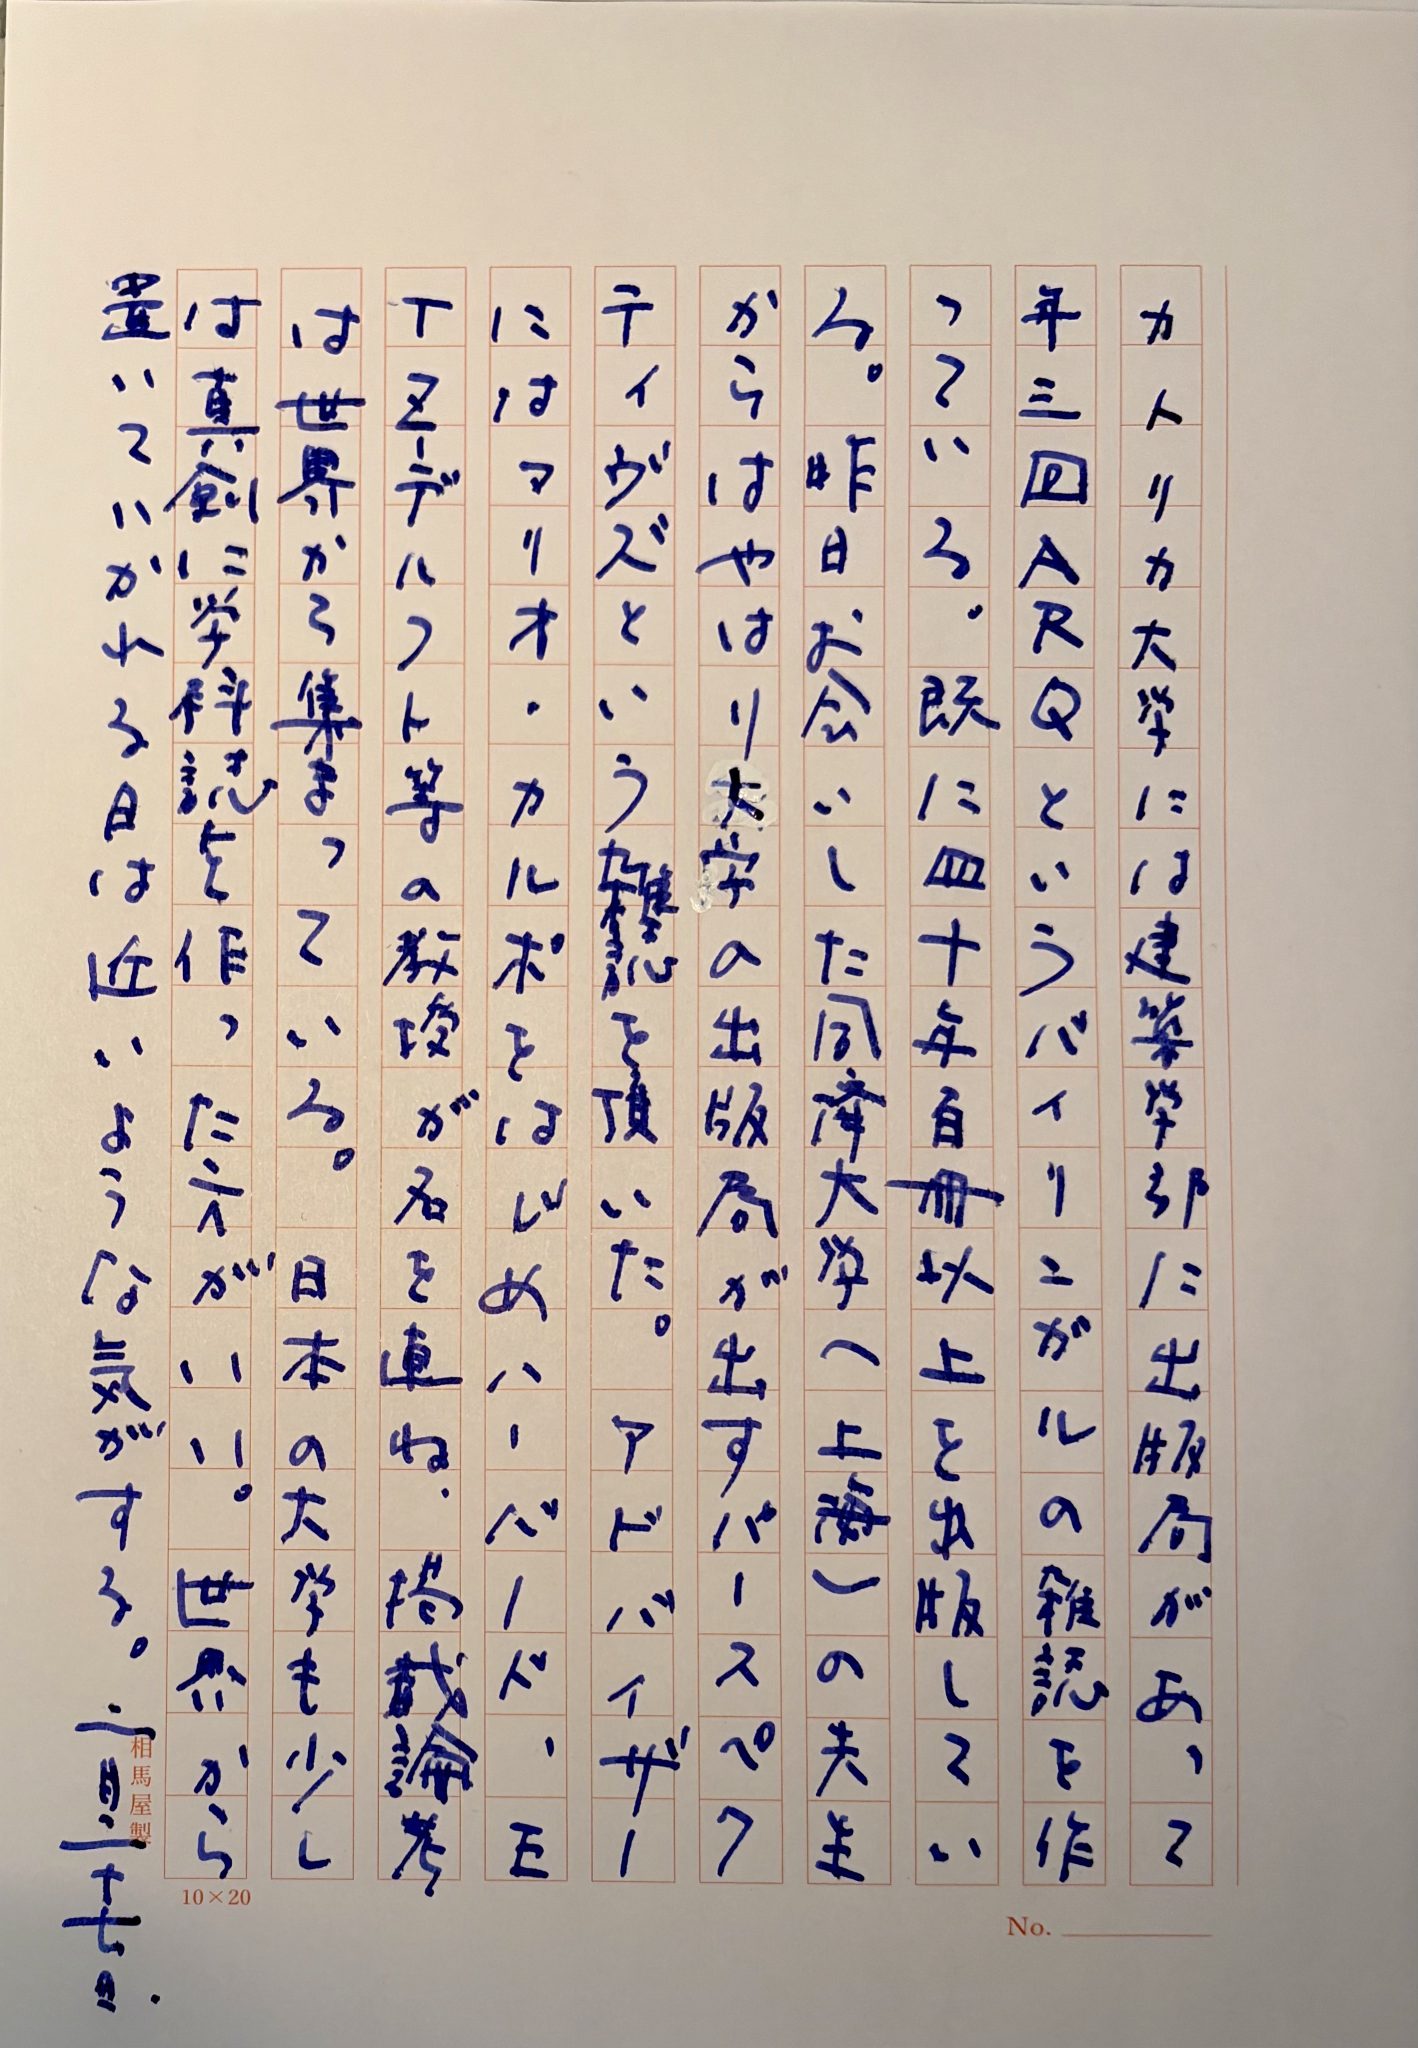 カトリカ大学には建築学部に出版局があって
年三回ARQというバイリンガルの雑誌を作
っている。既に四十年百冊以上を出版してい
る。昨日お会いした同済大学(上海)の先生
からはやはり大学の出版局が出すパースペク
ティヴズという雑誌を頂いた。アドバイザー
にはマリオ・カルポをはじめハーバード、E
TZーデルフト等の教授が名を連ね、搭載論考
は世界から集まっている。日本の大学も少し
は真剣に学科誌を作った方がいい。世界から
置いていかれる日は近いような気がする。二月二十七日.
相馬屋製
10×20
No.